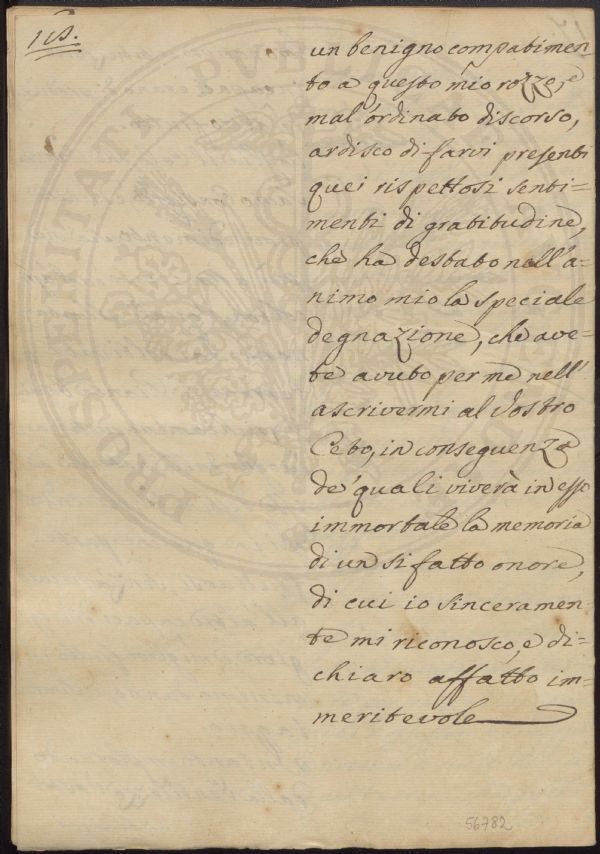 118.
un benigno compatimen
to a questo mio rozzo, e
mal'ordinato discorso,
ardisco di farvi presenti
quei rispettosi senti=
menti di gratitudine,
che ha destato nell'a=
nimo mio la speciale
degnazione, che ave=
te avuto per me nell'
ascrivermi al Vostro
Ceto, in conseguenza
de' quali viverà in esso
immortale la memoria
di un sì fatto onore,
di cui io sinceramen=
te mi riconosco, e di=
chiaro affatto im=
meritevole
56782
PROSPERITATI PVB